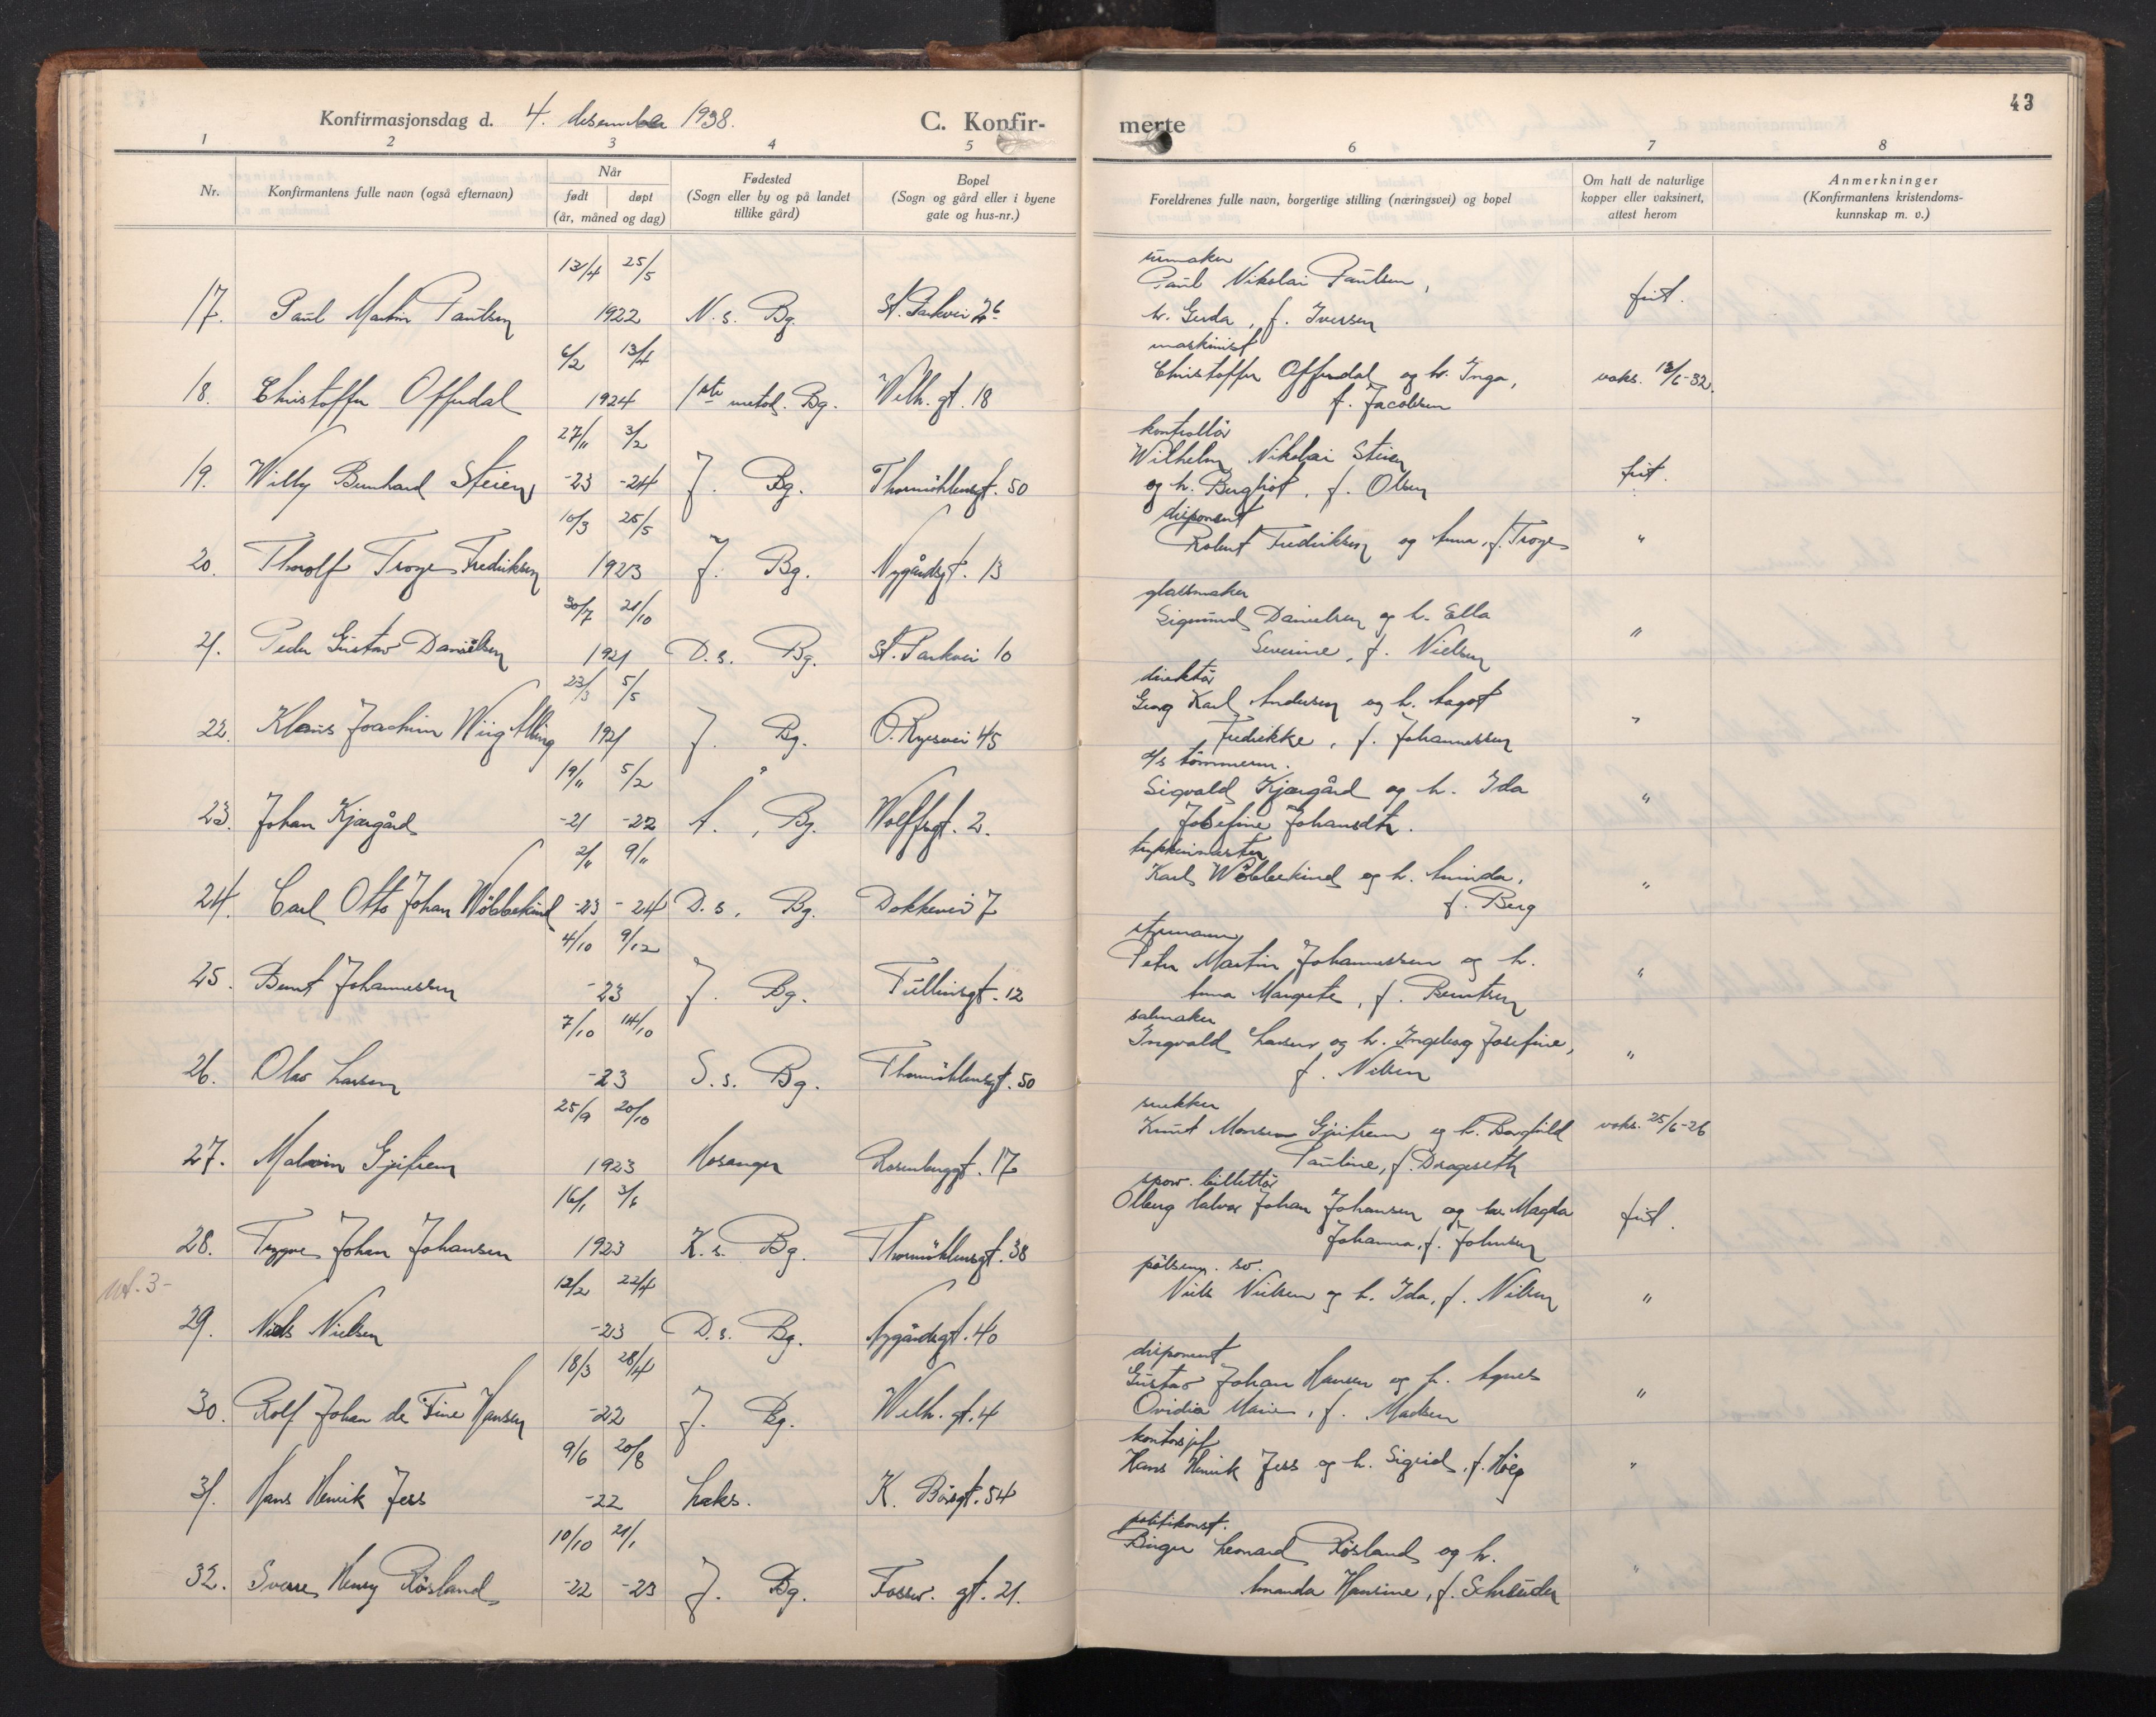 43
Konfirmasjonsdag d. 4. desember 1938. C. Konfir- merte
1 2 3 4 5 6 7 8
Nr. Konfirmantens fulle navn (også efternavn) Når født døpt (år, måned og dag) Fødested (Sogn eller by og på landet tillike gård) Bopel (Sogn og gård eller i byene gate og hus-nr.) Foreldrenes fulle navn, borgerlige stilling (næringsvei) og bopel Om hatt de naturlige kopper eller vaksinert, attest herom Anmerkninger (Konfirmantens kristendoms- kunnskap m. v.)
13/4 25/5 urmaker
Paul Nikolai Paulsen,
17. Paul Martin Paulsen 1922 N. s. Bg. St. Parkvei 26 h. Gerda, f. Iversen frit.
6/2 13/4 maskinist
18. Christoffer Offerdal 1924 1ste metod. Bg. Wilh. gt. 18 Christoffer Offerdal og h. Inga, vaks. 18/6-32.
f. Jacobsen
27/11 3/2 kontrollør
Wilhelm Nikolai Steien
19. Willy Bernhard Steien -23 -24 J. Bg. Thormöhlensgt. 50 og h. Bergliot, f. Olsen frit.
10/3 25/5 disponent
20. Thorolf Troye Fredriksen 1923 J. Bg. Nygårdsgt. 13 Robert Fredriksen og Anna, f. Troye "
30/7 21/10 glassmaker
Sigmund Danielsen og h. Ella
21. Peder Gustav Danielsen 1921 D. s. Bg. St. Parkvei 10 Severine, f. Nielsen "
23/3 5/5 direktør
Georg Karl Andersen og h. Aagot
22. Klaus Joachim Wiig 1921 J. Bg. O. Ryesvei 45 Fredrikke, f. Johannessen "
19/11 5/2 tømmerm.
Sigvald Kjærgård og h. Ida
23. Johan Kjærgård -21 -22 Å. Bg. Wolffsgt. 2. Josefine Johansdtr. "
2/11 9/11
Karl Wöbbekind og h. Aminda,
24. Carl Otto Johan Wöbbekind -23 -24 D. s. Bg. Dokkevei 7 f. Berg "
4/10 9/12 styrmann
Peter Martin Johannessen og h.
25. Bernt Johannessen -23 J. Bg. Tullinsgt. 12 Anna Margrete, f. Berntsen "
7/10 14/10 salmaker
Ingvald Larsen og h. Ingeborg Josefine,
26. Olav Larsen -23 S. s. Bg. Thormöhlensgt. 50 f. Nilsen "
25/9 20/10 snekker
Knut Monsen Gjeitrem og h. Borghild vaks. 25/6-26
27. Malvin Gjeitrem 1923 Hosanger Rosenberggt. 17 Pauline, f. Drageseth
16/1 3/6 sporv. billettør
Olberg Halvor Johan Johansen og h. Magda frit.
28. Trygve Johan Johansen 1923 K. s. Bg. Thormöhlensgt. 38 Johanna, f. Johnsen
ut. 3-
12/2 22/4 pølsem.
Niels Nielsen og h. Ida, f. Nilsen "
29. Niels Nielsen -23 D. s. Bg. Nygårdsgt. 40
18/3 28/4 disponent
Gustav Johan Hansen og h. Agnes
30. Rolf Johan de Fine Hansen -22 J. Bg. Wilh. gt. 4 Ovidia Marie, f. Madsen "
9/6 20/8 kontorsjef
Hans Henrik Jess og h. Sigrid, f. Høeg "
31. Hans Henrik Jess -22 Laks. K. Bøsgt. 54
10/10 21/1 politikonst.
Birger Leonard Røsland og h.
32. Sverre Henry Røsland -22 -23 J. Bg. Fossw. gt. 21. Amanda Hansine, f. Schreuder "